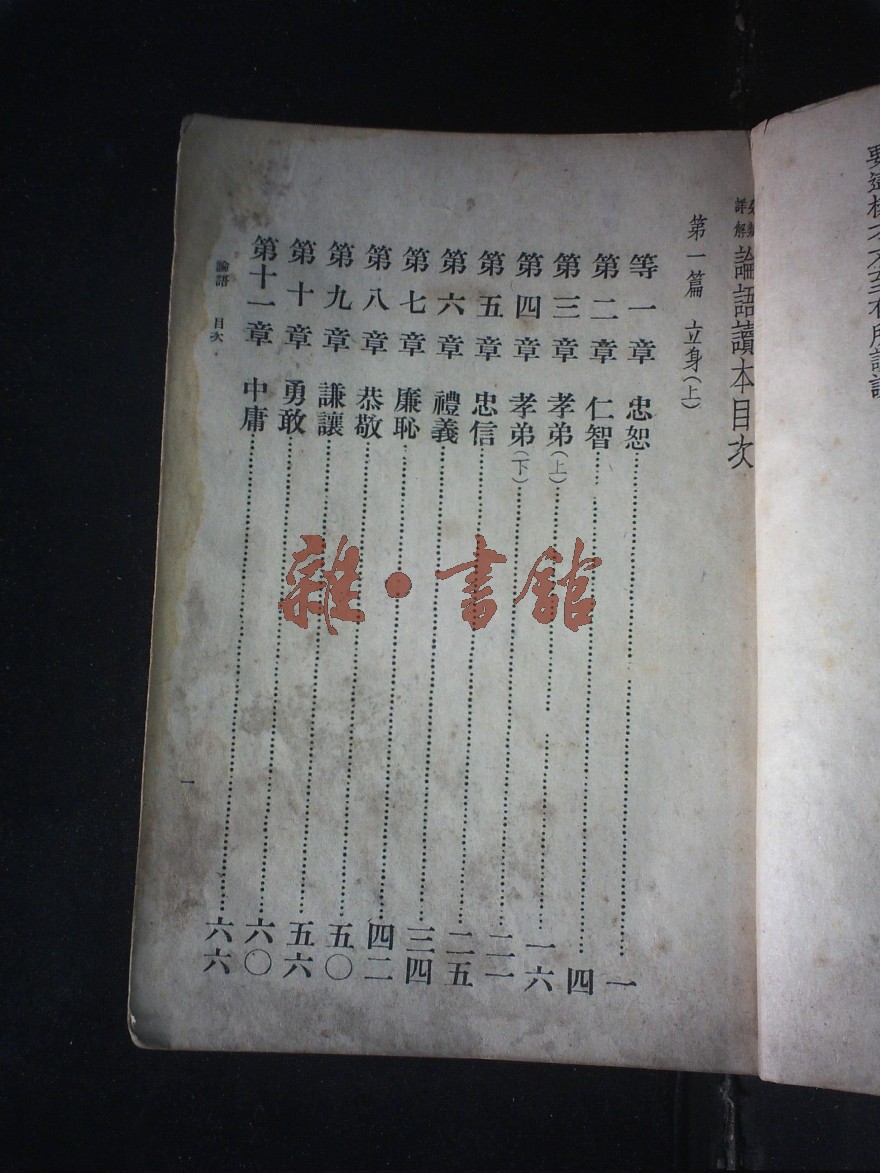 詳解
論語讀本目次
第一篇 立身(上)
等一章 忠恕……一
第二章 仁智……四
第三章 孝弟(上)……一六
第四章 孝弟(下)……二一
第五章 忠信……二五
第六章 禮義……三四
第七章 廉恥……四二
第八章 恭敬……五〇
第九章 謙讓……五六
第十章 勇敢……六〇
第十一章 中庸……六六
論語 目次
一
雜·書館